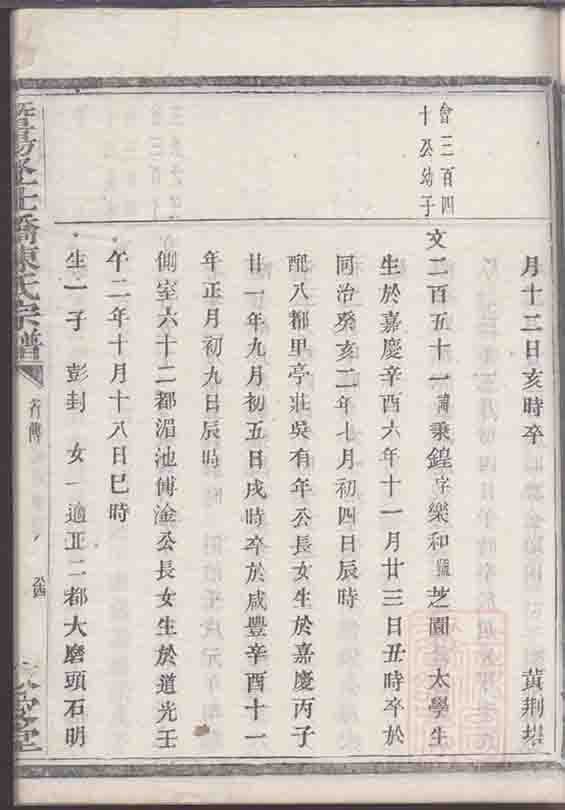 月十二日亥時卒 黃荆塔
會三百四
十公幼子
文二百五十一諱秉鍠字樂和號芝園 太學生
生於嘉慶辛酉六年十一月廿三日丑時卒於
同治癸亥二年七月初四日辰時
配八都里亭莊吳有年公長女生於嘉慶丙子
廿一年九月初五日戌時卒於咸豐辛酉十一
年正月初九日辰時
側室六十二都湄池傅淦公長女生於道光壬
午二年十月十八日巳時
生一子 彭封 女一適正二都大磨頭石明
暨陽 橋陳氏宗譜
行傳